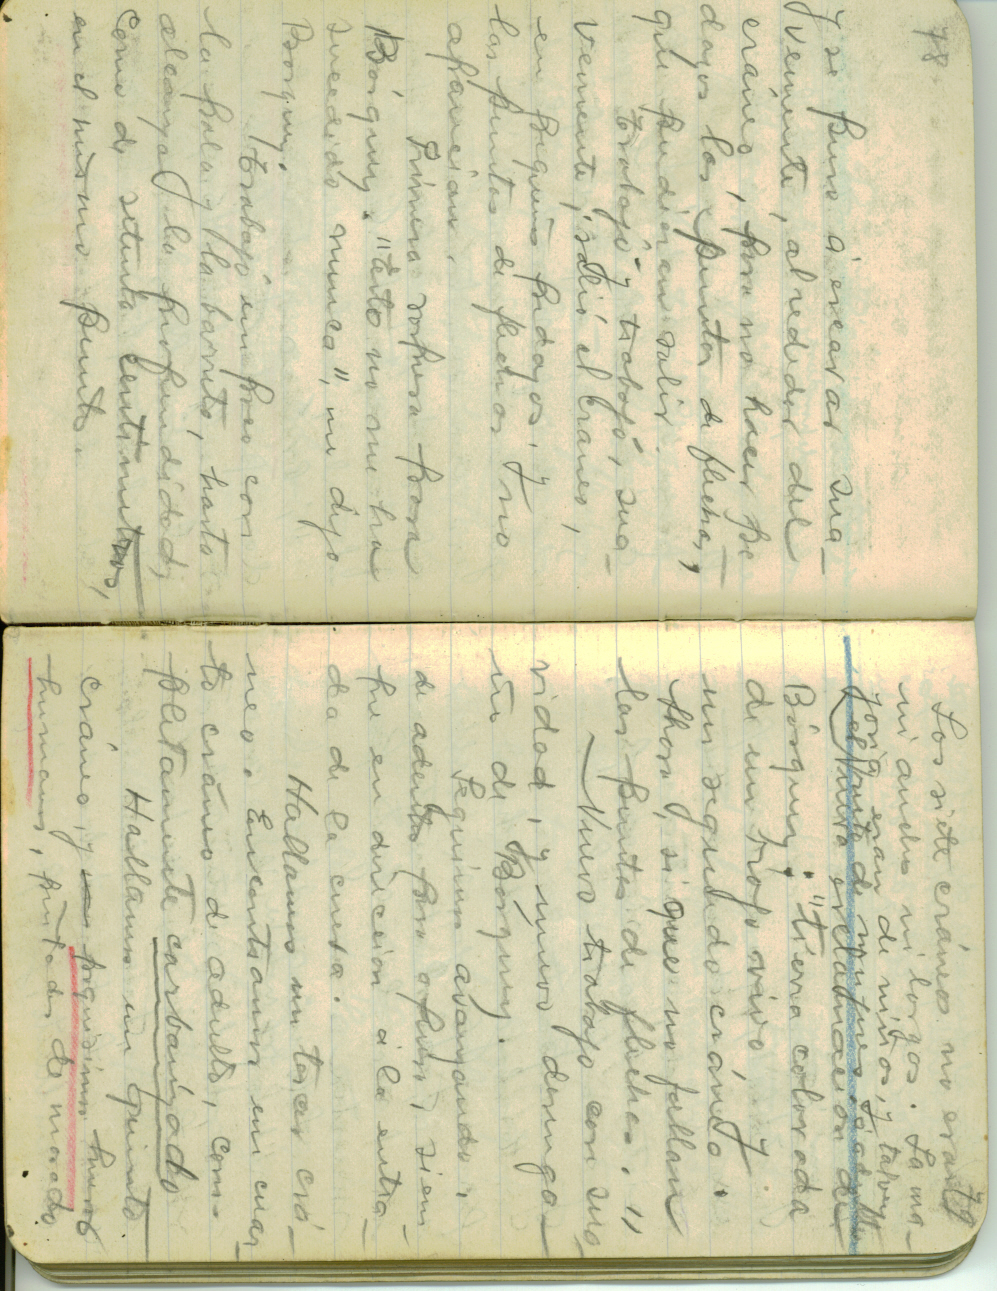 78.
y se puso á excavar sua-
vemente, alrededor del
cráneo, para no hacer pe
dazos las puntas de flechas,
que pudieran salir.
Trabajó y trabajó, sua-
vemente; salió el cráneo,
en pequeños pedazos, y
las puntas de flechas no
aparecían.
Primera sorpresa para
Bórquez. "Esto no me ha
sucedido nunca", me dijo
Borquez.
Trabajó un poco con
la pala y la barreta, hasta
alcanzar la profundidad,
como de setenta centímetros,
en el mismo punto.
79
Los siete cráneos no eran
ni anchos ni largos. La ma-
yoría eran de niños, y talvez
Bórquez: "tierra colorada
de un rojo vivo y
un segundo cráneo.
Ahora sí que no fallan
las puntas de flechas."
Nuevo trabajo con sua
vidad, y nuevo desenga-
ño de Bórquez.
Seguimos avanzando,
de adentro para afuera, siem-
pre en dirección á la entra-
da de la cueva.
Hallamos un tercer crá-
neo. Encontramos un cuar
to cráneo de adulto, com-
pletamente carbonizado
Hallamos un quinto
cráneo, y pequeños huesos
humanos, pintados de morado